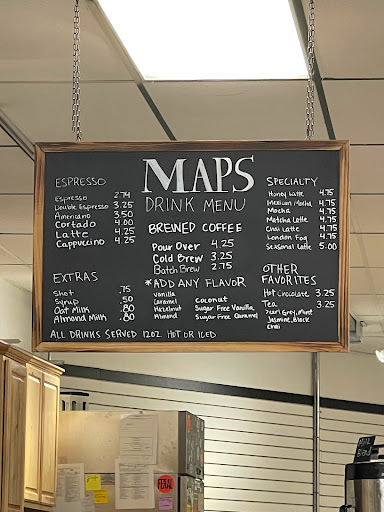 MAPS
DRINK MENU
ESPRESSO
Espresso 2.74
Double Espresso 3.25
Americano 3.50
Cortado 4.00
Latte 4.25
Cappuccino 4.25
EXTRAS
Shot .75
Syrup .50
Oat Milk .80
Almond Milk .80
BREWED COFFEE
Pour Over 4.25
Cold Brew 3.25
Batch Brew 2.75
*ADD ANY FLAVOR
Vanilla
Caramel
Hazelnut
Almond
Coconut
Sugar Free Vanilla
Sugar Free Caramel
SPECIALTY
Honey Latte 4.75
Mexican Mocha 4.75
Mocha 4.75
Matcha Latte 4.75
Chai Latte 4.75
London Fog 4.75
Seasonal Latte 5.00
OTHER
FAVORITES
Hot Chocolate 3.25
Tea 3.25
Earl Grey, Mint
Jasmine, Black
Chai
ALL DRINKS SERVED 12OZ HOT OR ICED
FERAL
Milk